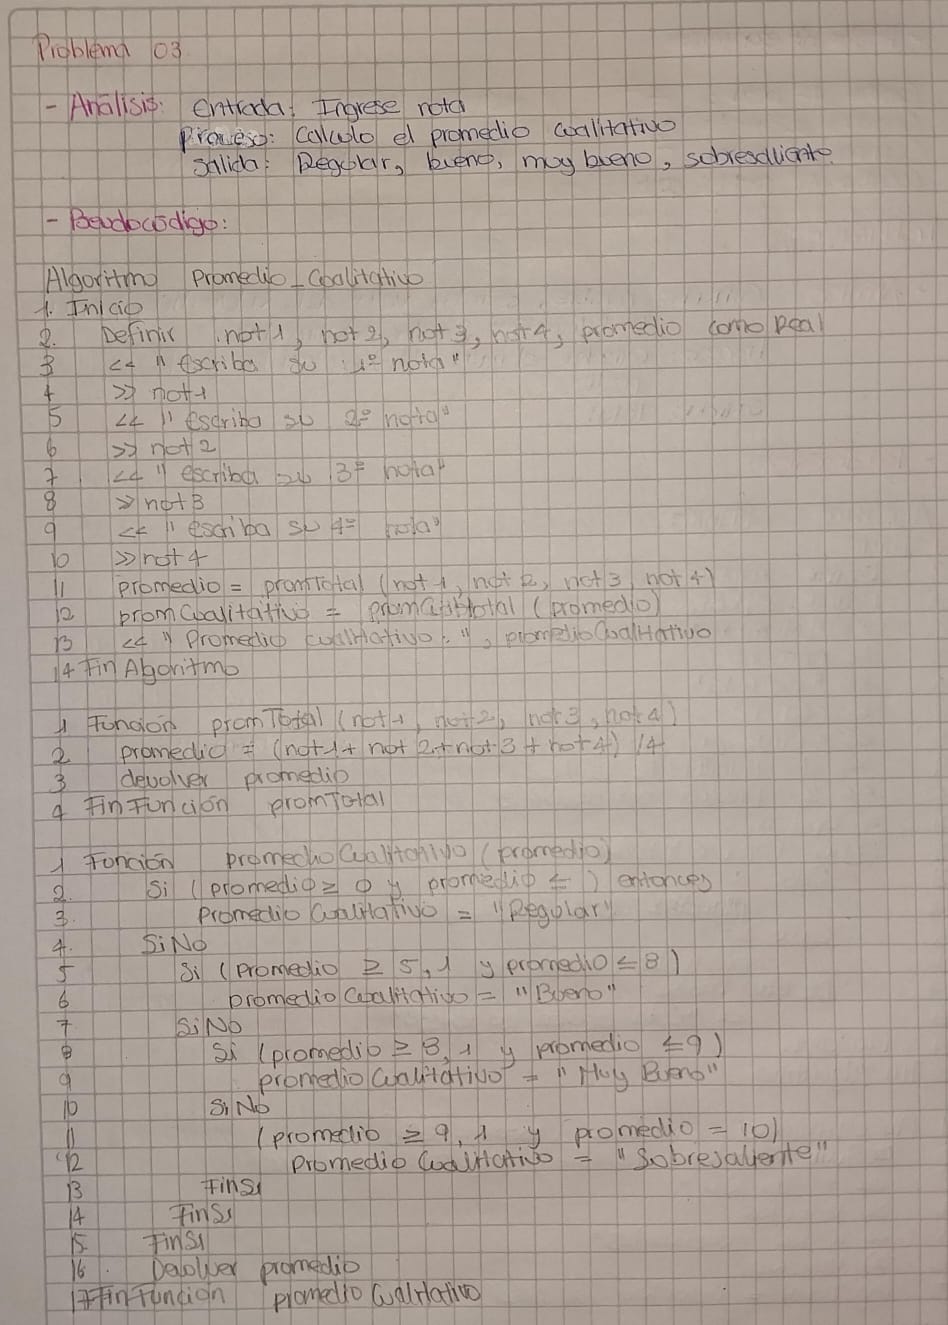 Problema 03
- Análisis: entrada: Ingrese nota
Proceso: Calculo el promedio cualitativo
Salida: Regular, bueno, muy bueno, sobresaliente.
- Pseudocódigo:
Algoritmo Promedio_Cualitativo
1. Inicio
2. Definir not1, not2, not3, not4, promedio como Real
3 << "escriba su 1º nota"
4 >> not1
5 << "escriba su 2º nota"
6 >> not2
7 << "escriba su 3º nota"
8 >> not3
9 << "escriba su 4º nota"
10 >> not4
11 promedio = promTotal (not1, not2, not3, not4)
12 promCualitativo = (promedio)
13 << "Promedio cualitativo:", promedioCualitativo
14 Fin Algoritmo
1 Función promTotal (not1, not2, not3, not4)
2 promedio = (not1 + not2 + not3 + not4) /4
3 devolver promedio
4 FinFunción promTotal
1 Función promedioCualitativo (promedio)
2. Si (promedio ≥ 0 y promedio ≤ ) entonces
3. PromedioCualitativo = "Regular"
4. SiNo
5 Si (Promedio ≥ 5,1 y promedio ≤ 8)
6 promedioCualitativo = "Bueno"
7 SiNo
8 Si (promedio ≥ 8,1 y promedio ≤ 9)
9 promedioCualitativo = "Muy Bueno"
10 SiNo
11 (promedio ≥ 9,1 y promedio = 10)
12 PromedioCualitativo = "Sobresaliente"
13 FinSi
14 FinSi
15. FinSi
16. Devolver promedio
17 FinFunción promedioCualitativo